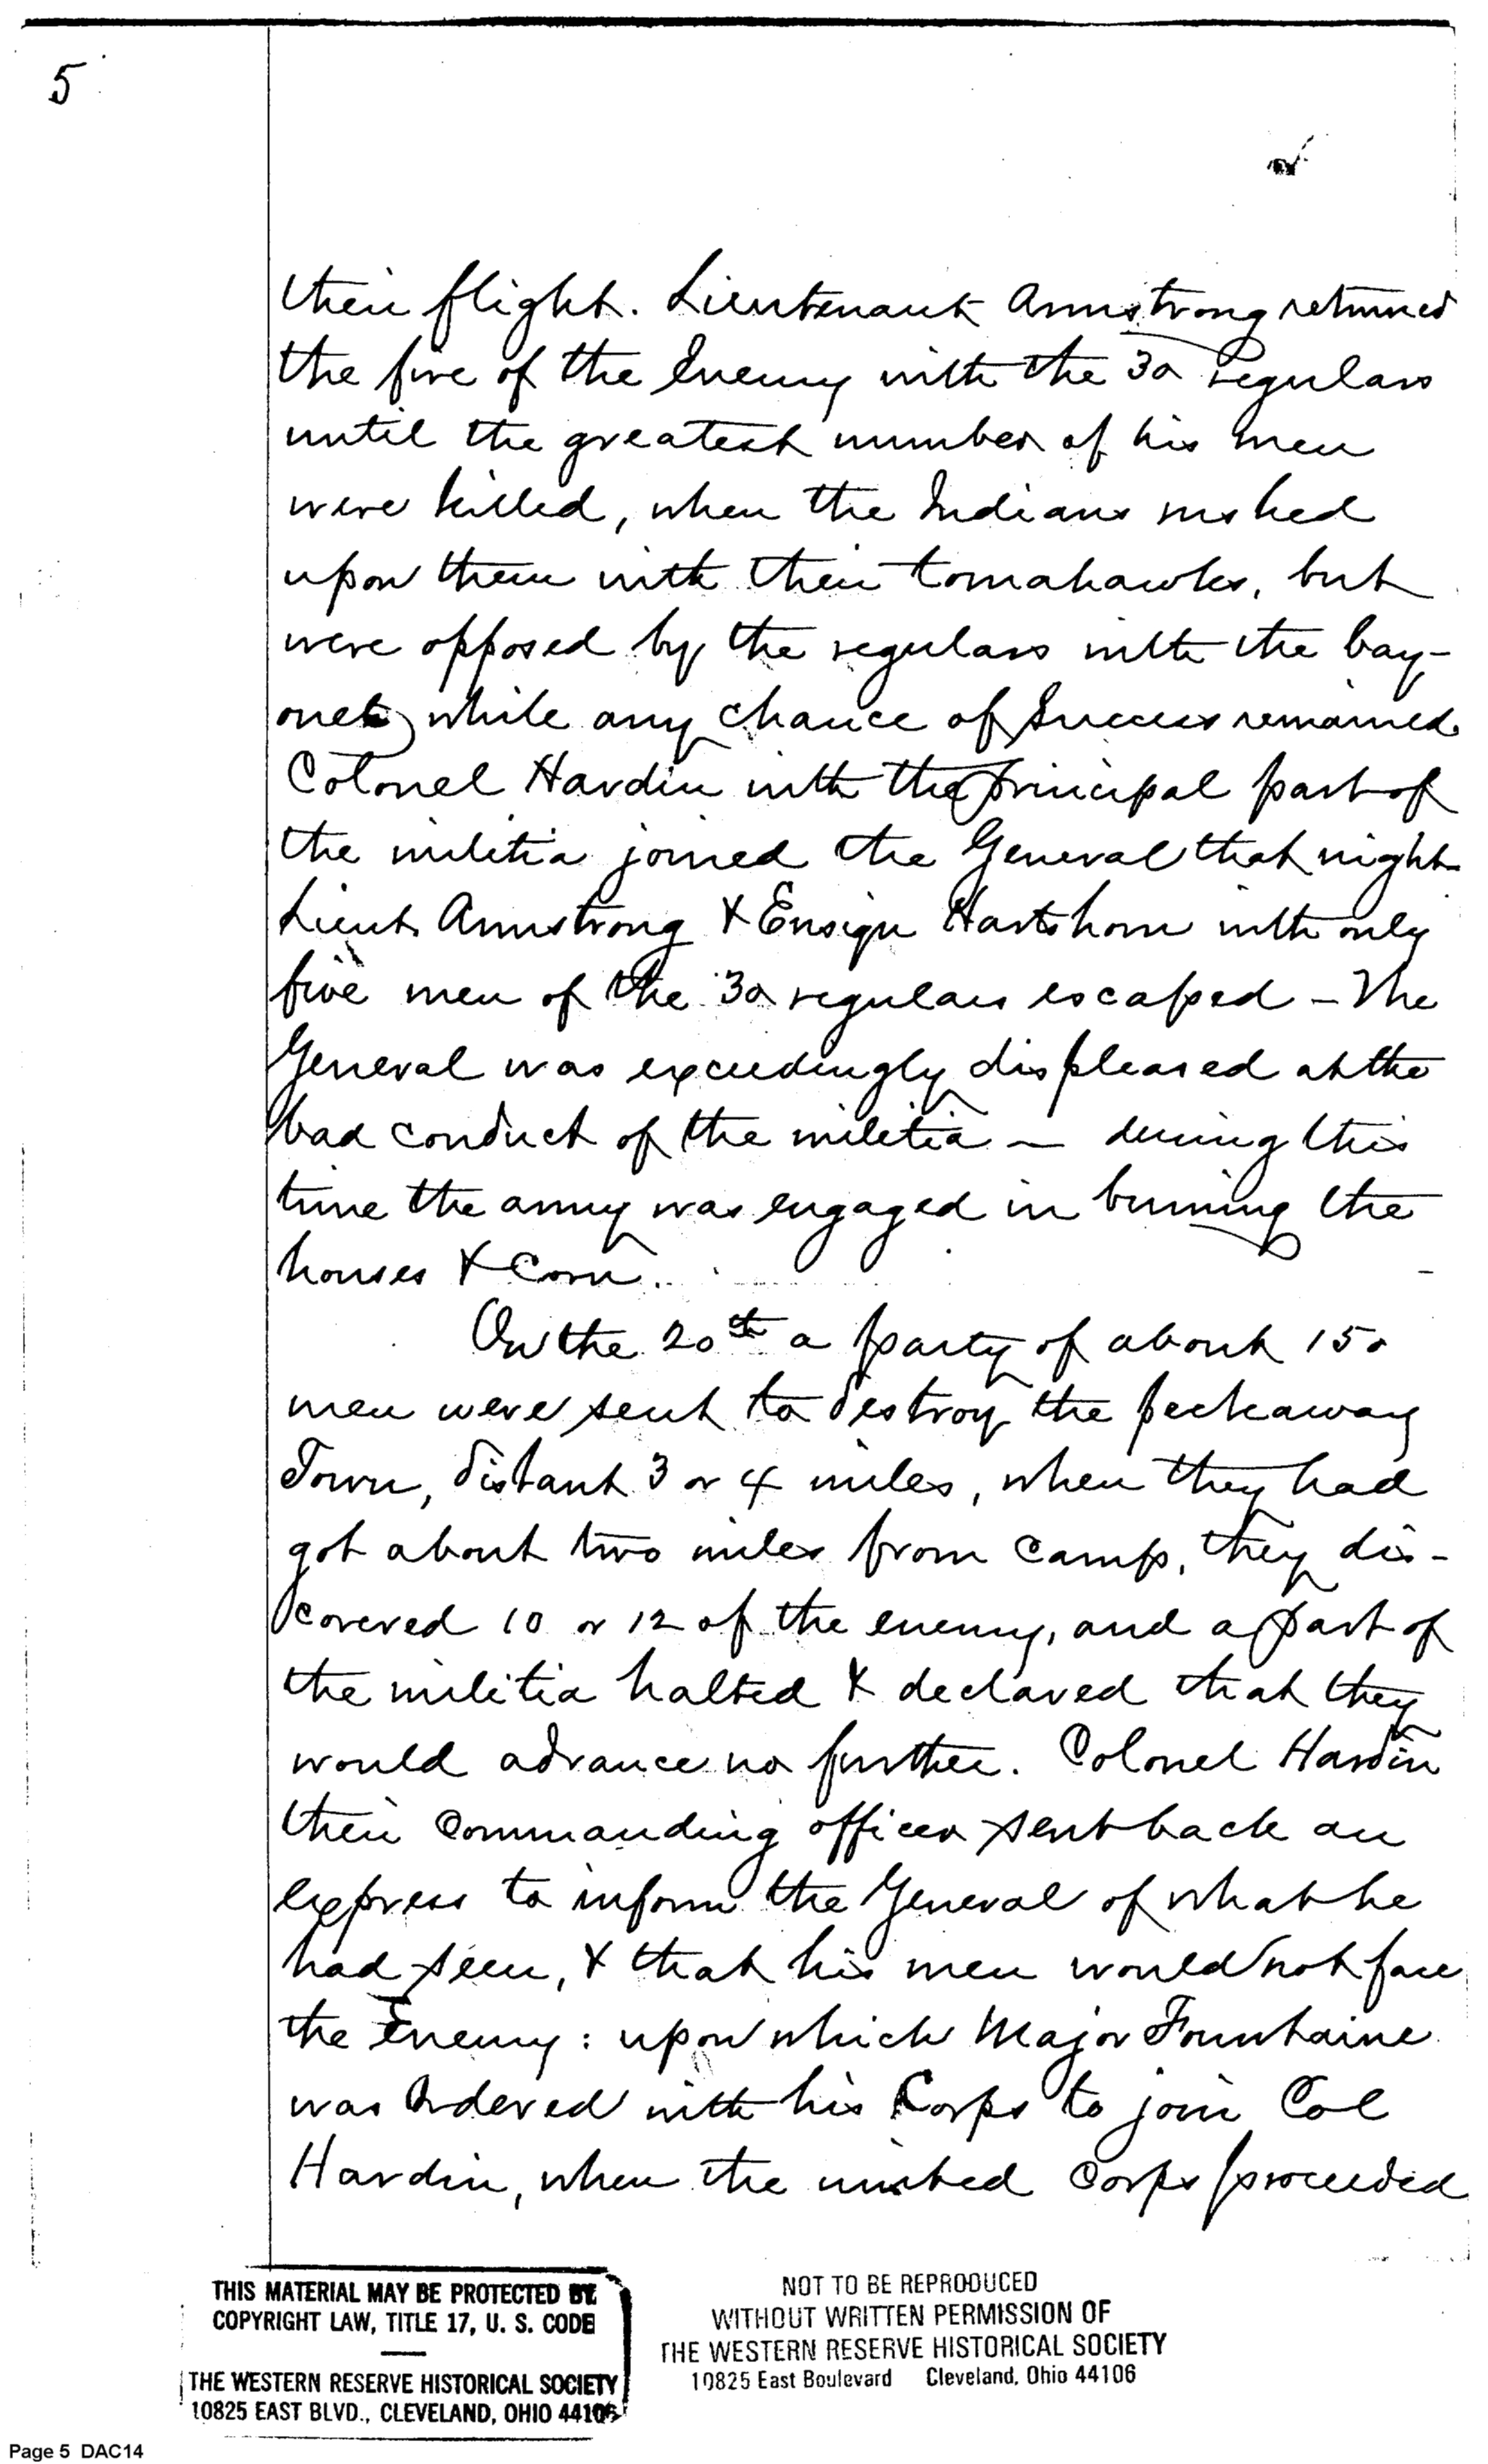 5
their flight. Lieutenant Armstrong returned
the fire of the Enemy with the 30 regulars
until the greatest number of his men
were killed, when the Indians rushed
upon them with their tomahawks, but
were opposed by the regulars with the bay-
onet while any chance of Success remained.
Colonel Hardin with the principal part of
the militia joined the General that night.
Lieut. Armstrong & Ensign Hartshorn with only
five men of the 30 regulars escaped - The
General was exceedingly displeased at the
bad conduct of the militia — during this
time the army was engaged in burning the
houses & Corn.
On the 20th a party of about 150
men were sent to destroy the peckaway
Town, distant 3 or 4 miles, when they had
got about two miles from camp, they dis-
covered 10 or 12 of the enemy, and a part of
the militia halted & declared that they
would advance no further. Colonel Hardin
their commanding officer sent back an
express to inform the General of what he
had seen, & that his men would not face
the Enemy: upon which Major Fountaine
was Ordered with his Corps to join Col
Hardin, when the united corps proceeded
THIS MATERIAL MAY BE PROTECTED BY
COPYRIGHT LAW, TITLE 17, U. S. CODE
THE WESTERN RESERVE HISTORICAL SOCIETY
10825 EAST BLVD., CLEVELAND, OHIO 44106
NOT TO BE REPRODUCED
WITHOUT WRITTEN PERMISSION OF
THE WESTERN RESERVE HISTORICAL SOCIETY
10825 East Boulevard Cleveland, Ohio 44106
Page 5 DAC14